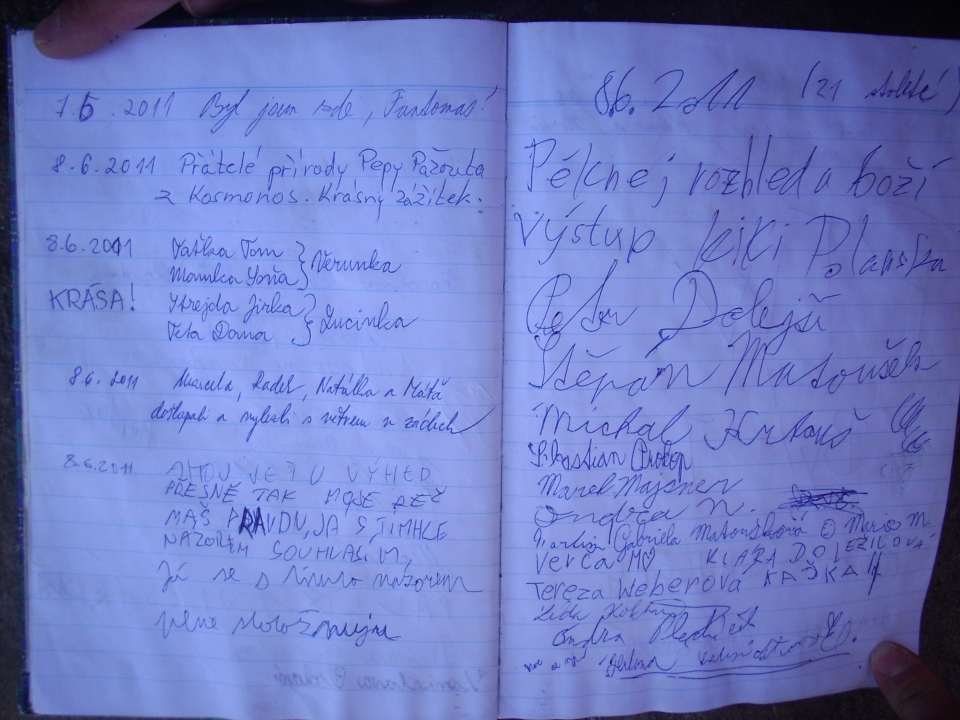 7.6.2011 Byl jsem zde, Fantomas!
8.6.2011 Přátelé přírody Pepy Pažouta
z Kosmonos. Krásný zážitek.
8.6.2011 Taťka Tom
Mamka Soňa } Verunka
KRÁSA! Strejda Jirka
Teta Dana } Lucinka
8.6.2011 Marcela, Radek, Natálka a Máťa
došlapali a vylezli s větrem v zádech
8.6.2011 VÝHED
PŘESNĚ TAK MOJE ŘEČ
MÁŠ PRAVDU, JA S TIMHLE
NÁZOREM SOUHLASIM
Já se s tímto názorem
plne
8.6.2011 (21 století)
Pěknej rozhled a boží
výstup kiki Polanská
Petr Dolejší
Štěpán Matoušek
Michal
Sebastian Prokop
Marek Majsner
Ondra N.
Gabriela Matoušková Marie M.
Verča M KLÁRA DOLEŽILOVÁ
Tereza Weberová KAŠKA
Ondra